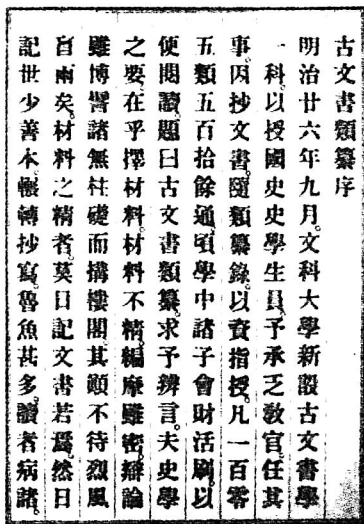 古文書類纂序
明治廿六年九月。文科大學新設古文書學
一科。以授國史史學生員。予承乏敎官。任其
事。因抄文書。隨類纂錄。以資指授。凡一百零
五類五百拾餘通。頃學中諸子會財活刷。以
便閱讀。題曰古文書類纂。求予辨言。夫史學
之要。在乎擇材料。材料不精。編摩雖密。辯論
雖博。譬諸無柱礎而搆樓閣。其顚不待烈風
盲雨矣。材料之精者。莫日記文書若焉。然日
記世少善本。輾轉抄寫。魯魚甚多。讀者病諸。